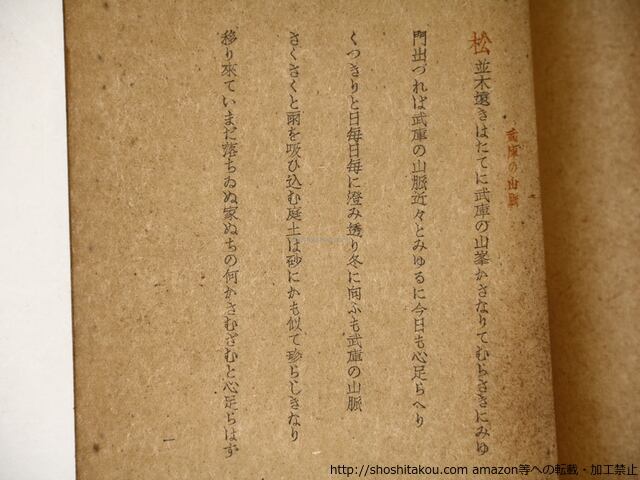 武庫の山脈
松並木遠きはたてに武庫の山峯かさなりてむらさきにみゆ
門出づれば武庫の山脈近々とみゆるに今日も心足らへり
くつきりと日毎日毎に澄み透り冬に向ふも武庫の山脈
さくさくと雨を吸ひ込む庭土は砂にかも似て珍らしきなり
移り來ていまだ落ちゐぬ家ぬちの何かさむざむと心足らはず
一
http://shoshitakou.com amazon等への転載・加工禁止